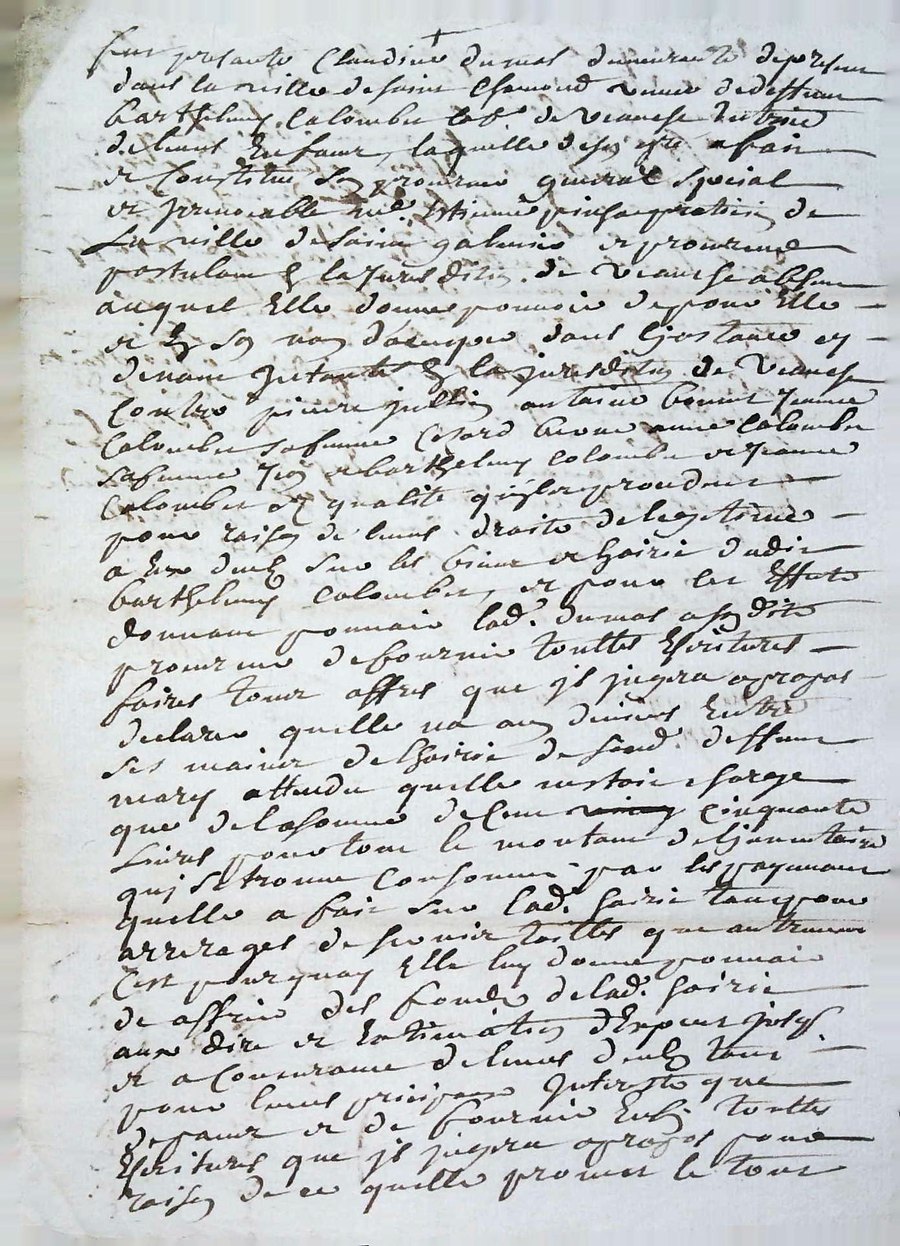 fut presante Claudine dumas demeurante depresant
dans la ville de saint Chamond veuve de deffunt
barthelemy Colombet lab^r de veauche tutrice
de leurs Enfans, laquelle de son gré a fait
et Constitué son procureur general special
et jrrevocable m^e. Etienne praticien de
la ville de saint galmier et procureur
postulant En la Jurisdiction de veauche absent
auquel Elle donne pouvoir de pour Elle
et En son nom dans Linstance
devant jntantée En la jurisdiction de veauche
Contre pierre jullien antoine bonnet Jeanne
Colombet sa femme anne Colombet
sa femme et barthelemy Colombet et Jeanne
Colombet En qualité quils procedent
pour raison de leurs droits de legitime
a Eux dues sur les biens et hoirie dudit
barthelemy Colombet, et pour cet Effet
donnant pouvoir lad. dumas a sondit
procureur de fournir touttes Escritures
faires tous offres que jl jugera apropos
declarer quelle na au deniers Entre
ses mains de lhoirie de sond. deffunt
mary attendu quelle nestoit chargé
que de la somme de Cent vingt Cinquante
Livres pour tout le montant de linventaire
quj se trouve Consommé par les payements
quelle a fait sur lad. hoirie tant pour
arrerages de servis tailles que autrement
Cest pourquoy Elle luy donne pouvoir
de offrir des fonds de lad. hoirie
aux dire et Estimation dExpert jusqs
et a Concurance de leurs deubs tant
pour leurs principaux Interests que
depans et de fournir Enfin touttes
Escritures que jl jugera apropos pour
raison de ce quelle promet le tout